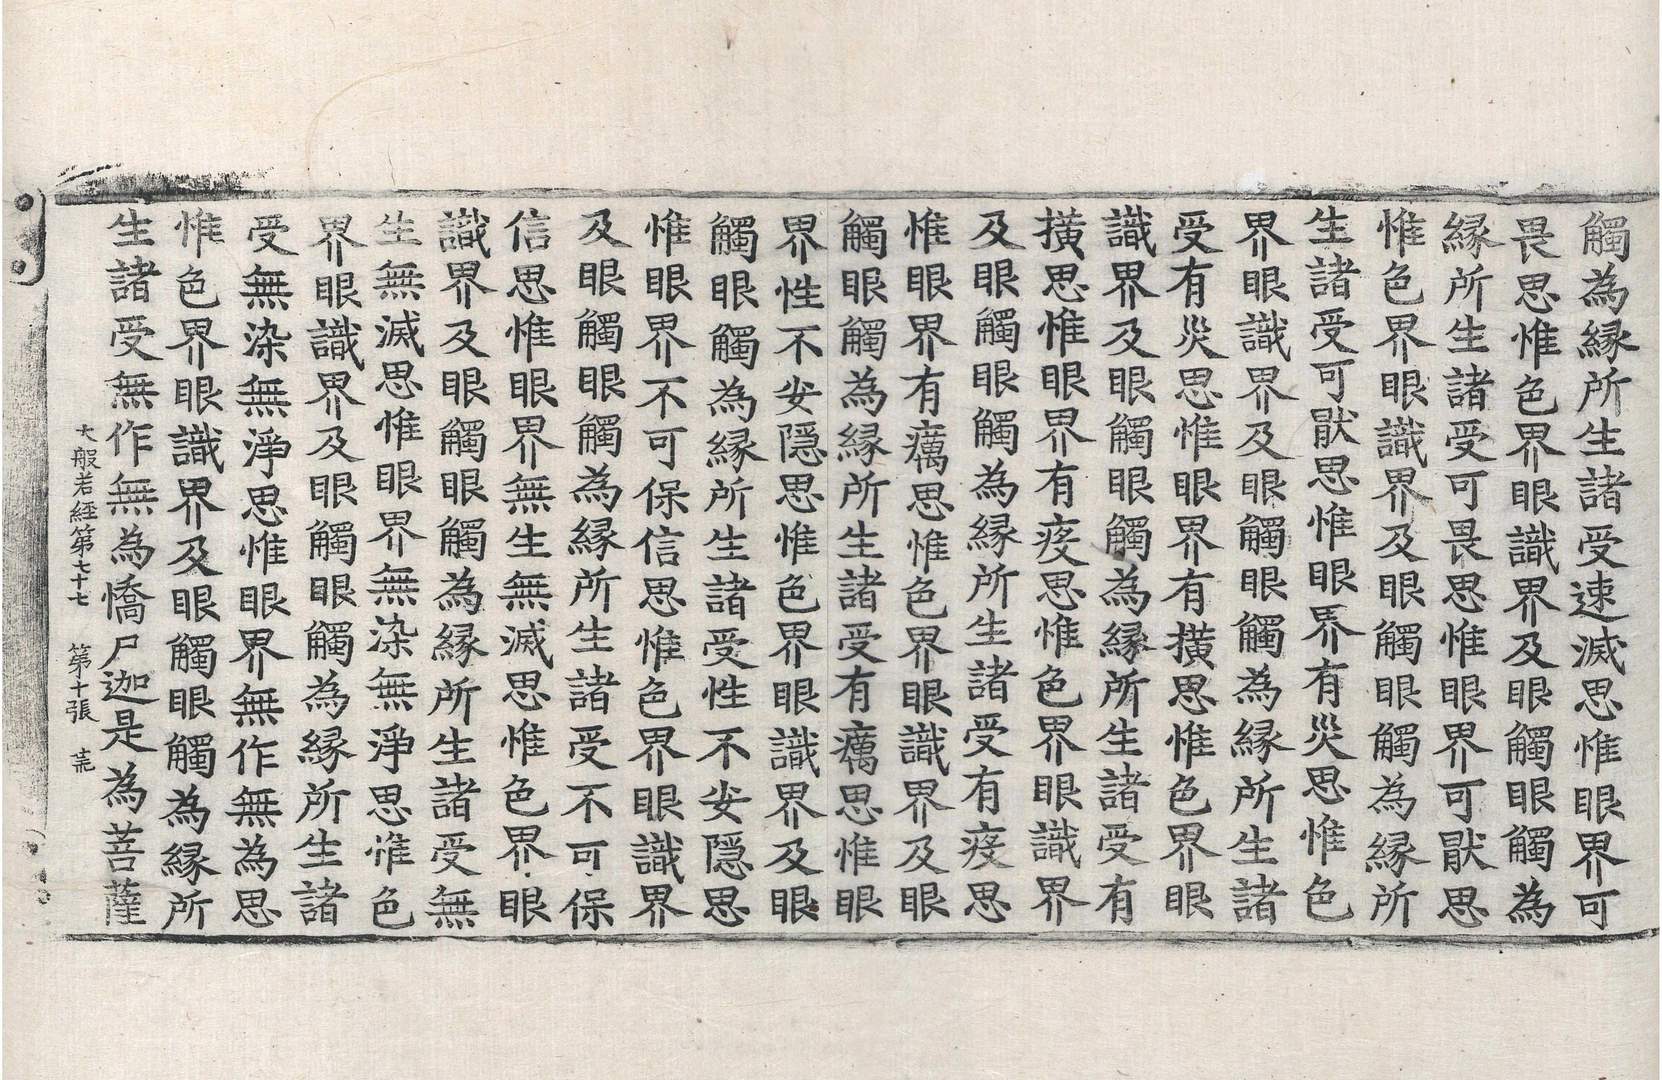 觸為縁所生諸受速滅思惟眼界可
畏思惟色界眼識界及眼觸眼觸為
縁所生諸受可畏思惟眼界可猒思
惟色界眼識界及眼觸眼觸為縁所
生諸受可猒思惟眼界有災思惟色
界眼識界及眼觸眼觸為縁所生諸
受有災思惟眼界有橫思惟色界眼
識界及眼觸眼觸為縁所生諸受有
橫思惟眼界有疫思惟色界眼識界
及眼觸眼觸為縁所生諸受有疫思
惟眼界有癘思惟色界眼識界及眼
觸眼觸為縁所生諸受有癘思惟眼
界性不安隱思惟色界眼識界及眼
觸眼觸為縁所生諸受性不安隱思
惟眼界不可保信思惟色界眼識界
及眼觸眼觸為縁所生諸受不可保
信思惟眼界無生無滅思惟色界眼
識界及眼觸眼觸為縁所生諸受無
生無滅思惟眼界無染無淨思惟色
界眼識界及眼觸眼觸為縁所生諸
受無染無淨思惟眼界無作無為思
惟色界眼識界及眼觸眼觸為縁所
生諸受無作無為憍尸迦是為菩薩
大般若經第七十七 第十張 荒